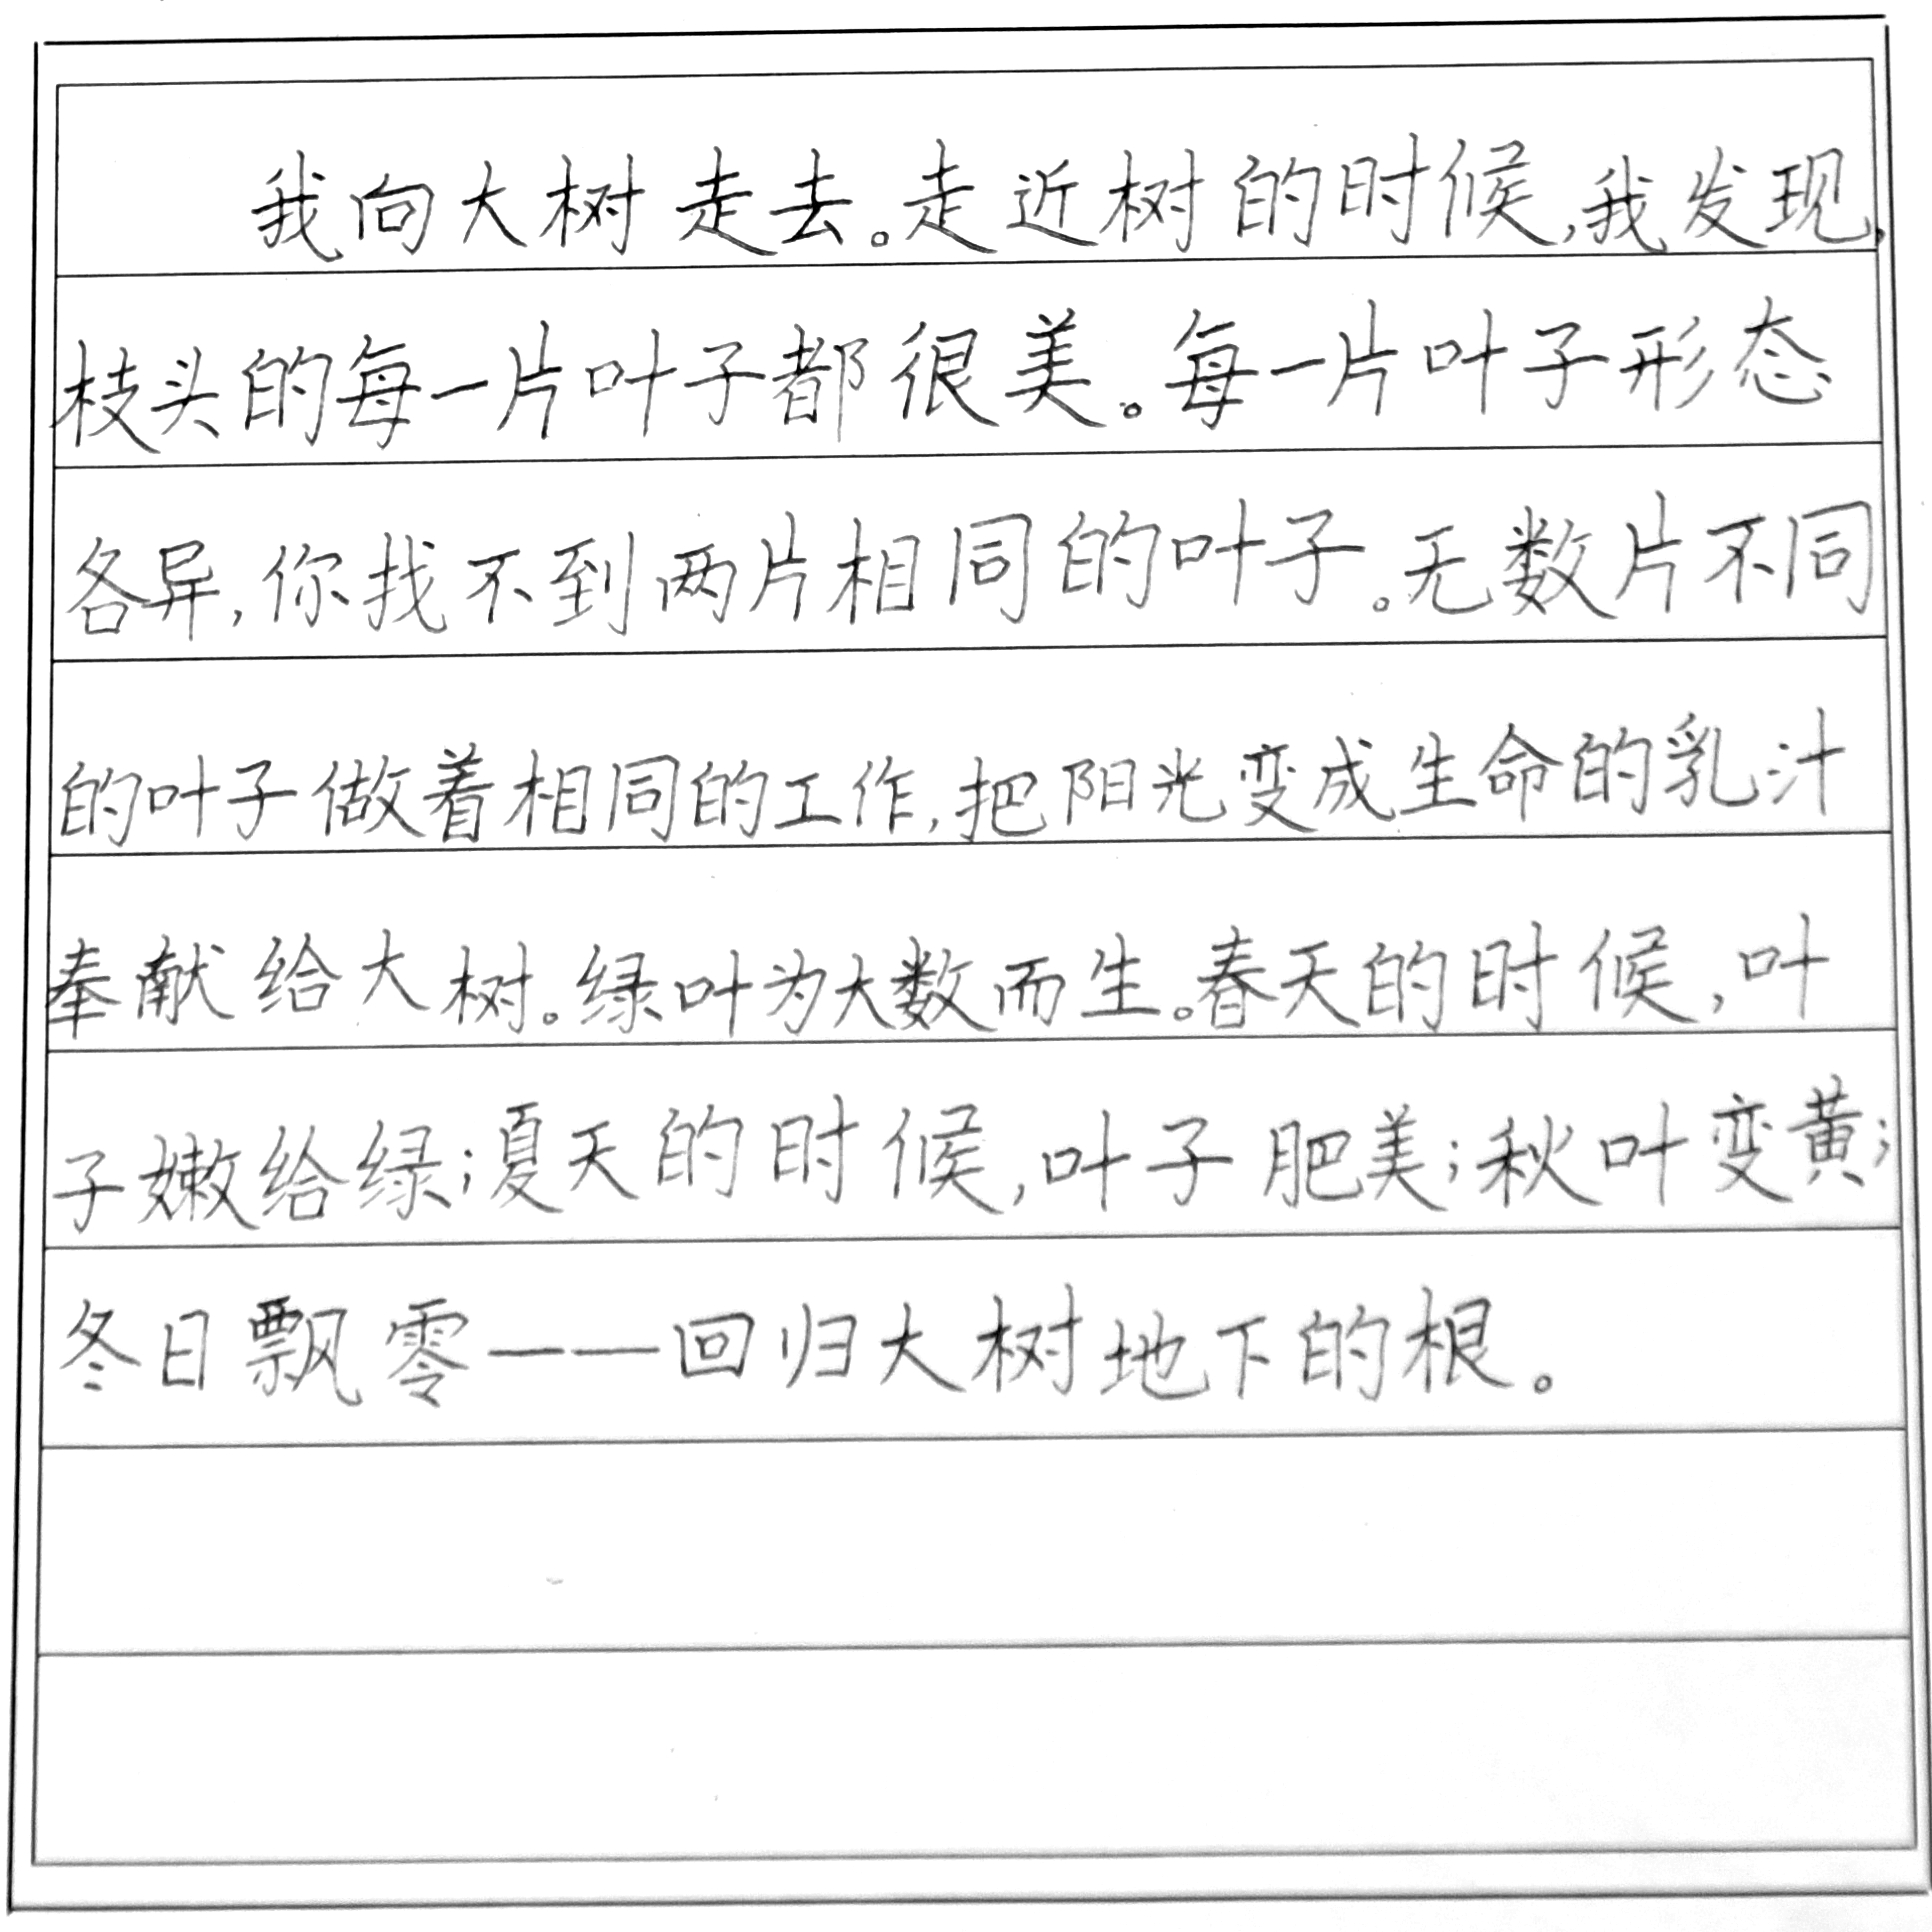 我向大树走去。走近树的时候,我发现,
枝头的每一片叶子都很美。每一片叶子形态
各异,你找不到两片相同的叶子。无数片不同
的叶子做着相同的工作,把阳光变成生命的乳汁
奉献给大树。绿叶为大数而生。春天的时候,叶
子嫩给绿;夏天的时候,叶子肥美;秋叶变黄;
冬日飘零——回归大树地下的根。